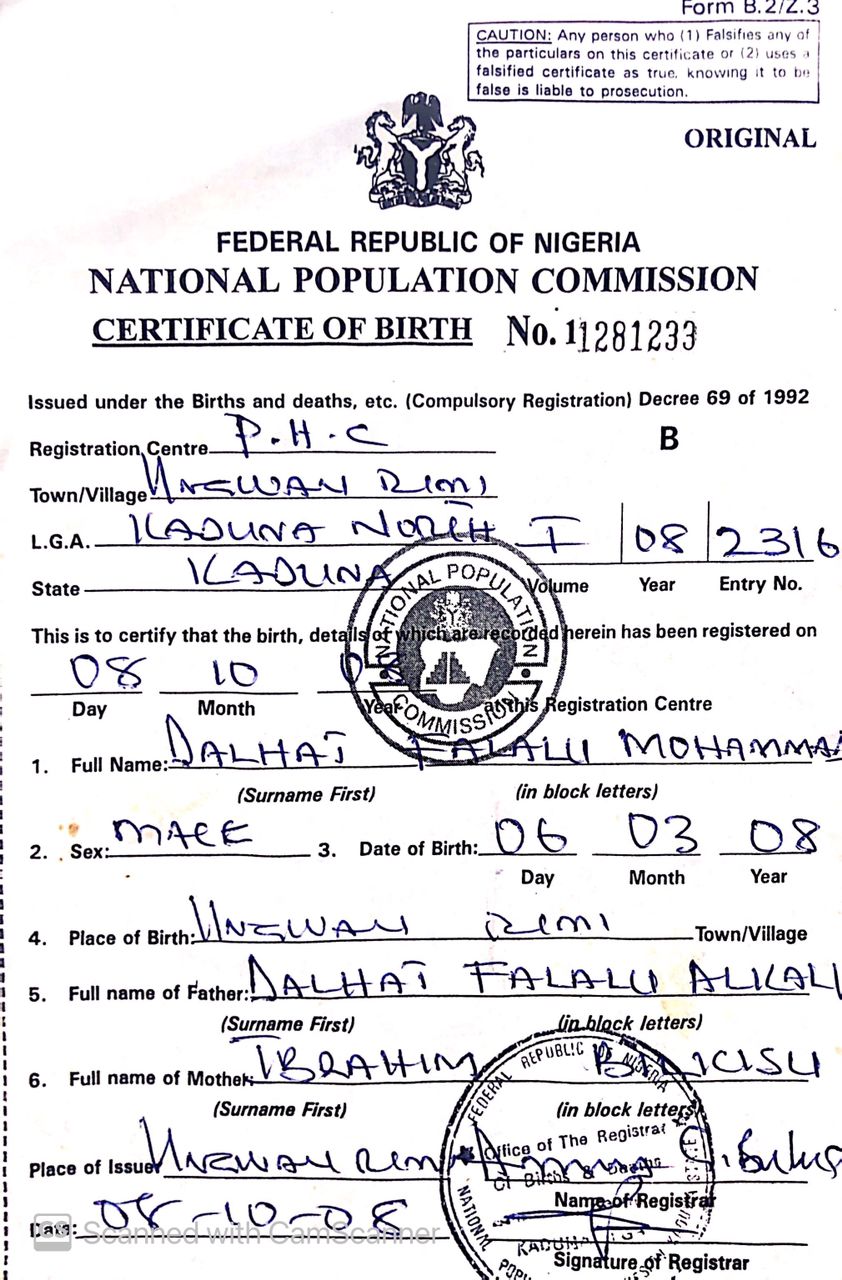 Form B.2/Z.3
CAUTION: Any person who (1) Falsifies any of
the particulars on this certificate or (2) uses a
falsified certificate as true, knowing it to be
false is liable to prosecution.
ORIGINAL
FEDERAL REPUBLIC OF NIGERIA
NATIONAL POPULATION COMMISSION
CERTIFICATE OF BIRTH No. 11281233
Issued under the Births and deaths, etc. (Compulsory Registration) Decree 69 of 1992
Registration Centre P.H.C B
Town/Village UNGWAN RIMI
L.G.A. KADUNA NORTH I 08 2316
State KADUNA Volume Year Entry No.
NATIONAL POPULATION COMMISSION
This is to certify that the birth, details of which are recorded herein has been registered on
08 10 08
Day Month Year at this Registration Centre
1. Full Name: DALHAT FALALU MOHAMMAD
(Surname First) (in block letters)
2. Sex: MALE 3. Date of Birth: 06 03 08
Day Month Year
4. Place of Birth: UNGWAN RIMI Town/Village
5. Full name of Father: DALHAT FALALU ALKALI
(Surname First) (in block letters)
6. Full name of Mother: IBRAHIM BILKISU
(Surname First) (in block letters)
FEDERAL REPUBLIC OF NIGERIA
Office of The Registrar
Of Births & Deaths
Place of Issue UNGWAN RIMI
Name of Registrar
Date: 08-10-08
KADUNA
Signature of Registrar
CS Scanned with CamScanner